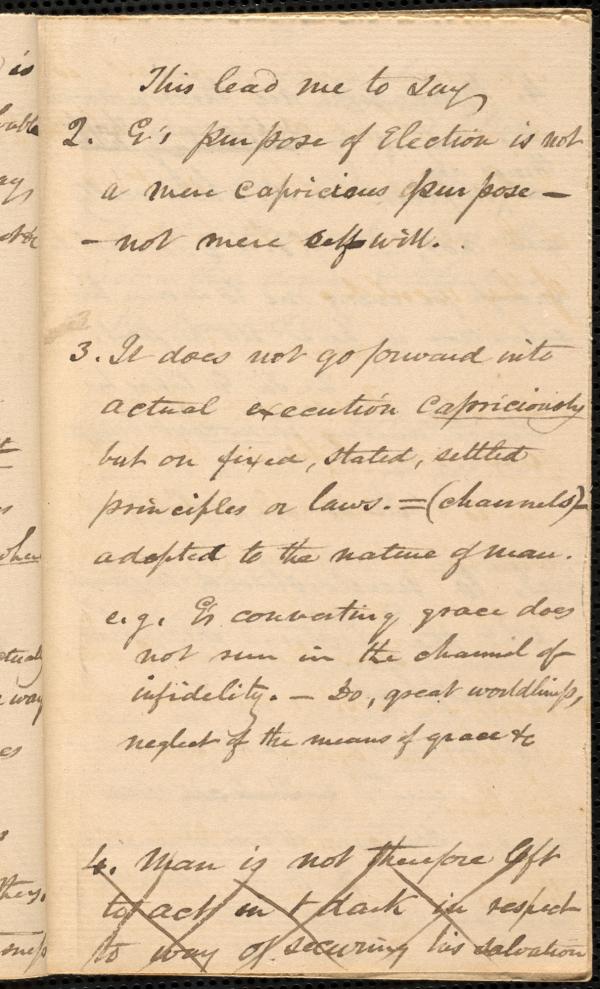 is
This lead me to say
2. G's purpose of Election is not
a mere capricious purpose —
— not mere self will.
3. It does not go forward into
actual execution capriciously
but on fixed, stated, settled
principles or laws. = (channels) =
adapted to the nature of man.
e.g. G's converting grace does
not run in the channel of
infidelity. — Do, great worldliness,
neglect of the means of grace &c
4. Man is not therefore left
to act in t dark in respect
to way of securing his salvation